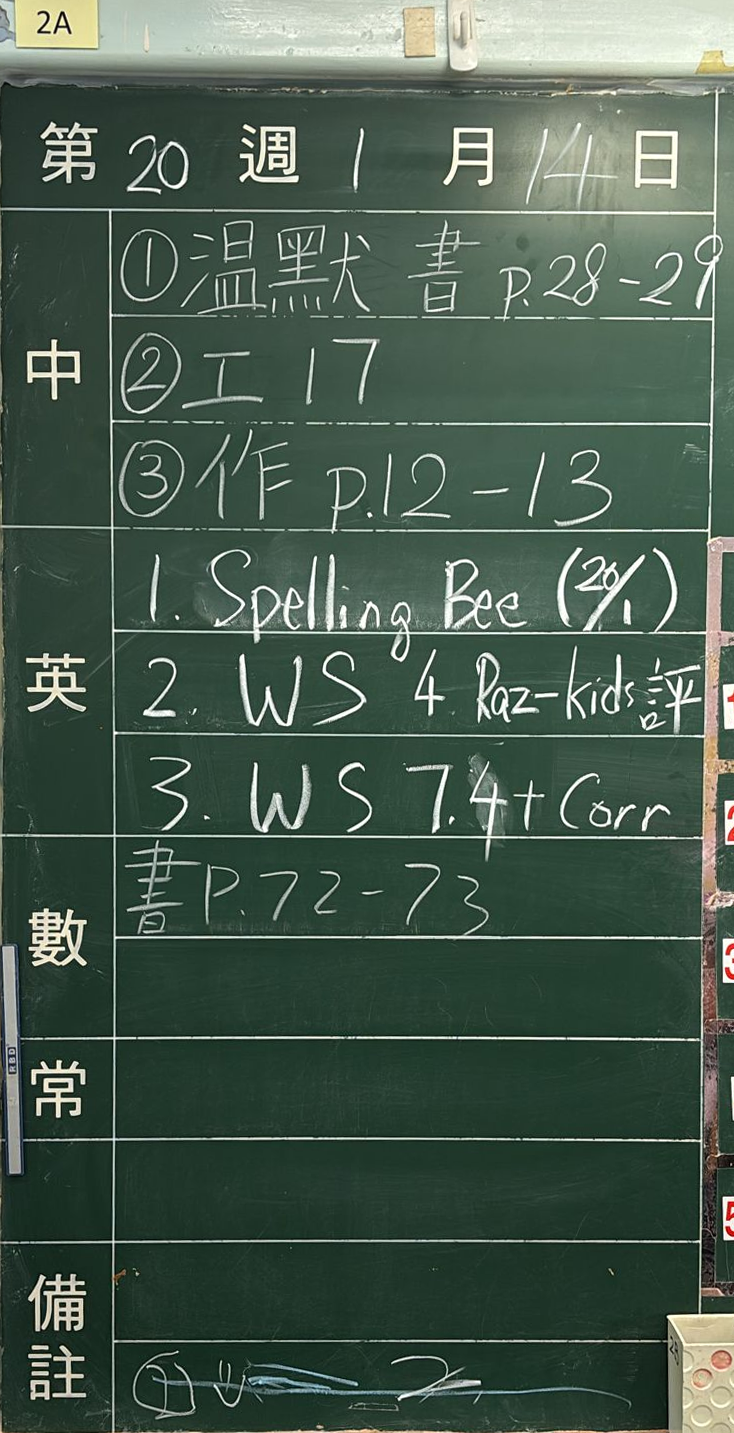 2A
第 20 週 1 月 14 日
中
①温默書 p.28-29
②工 17
③作 p.12-13
英
1. Spelling Bee (20/1)
2. WS 4. Raz-kids 評
3. WS 7.4 + Corr
數
書P.72-73
常
備註
RBD
1
2
3
5